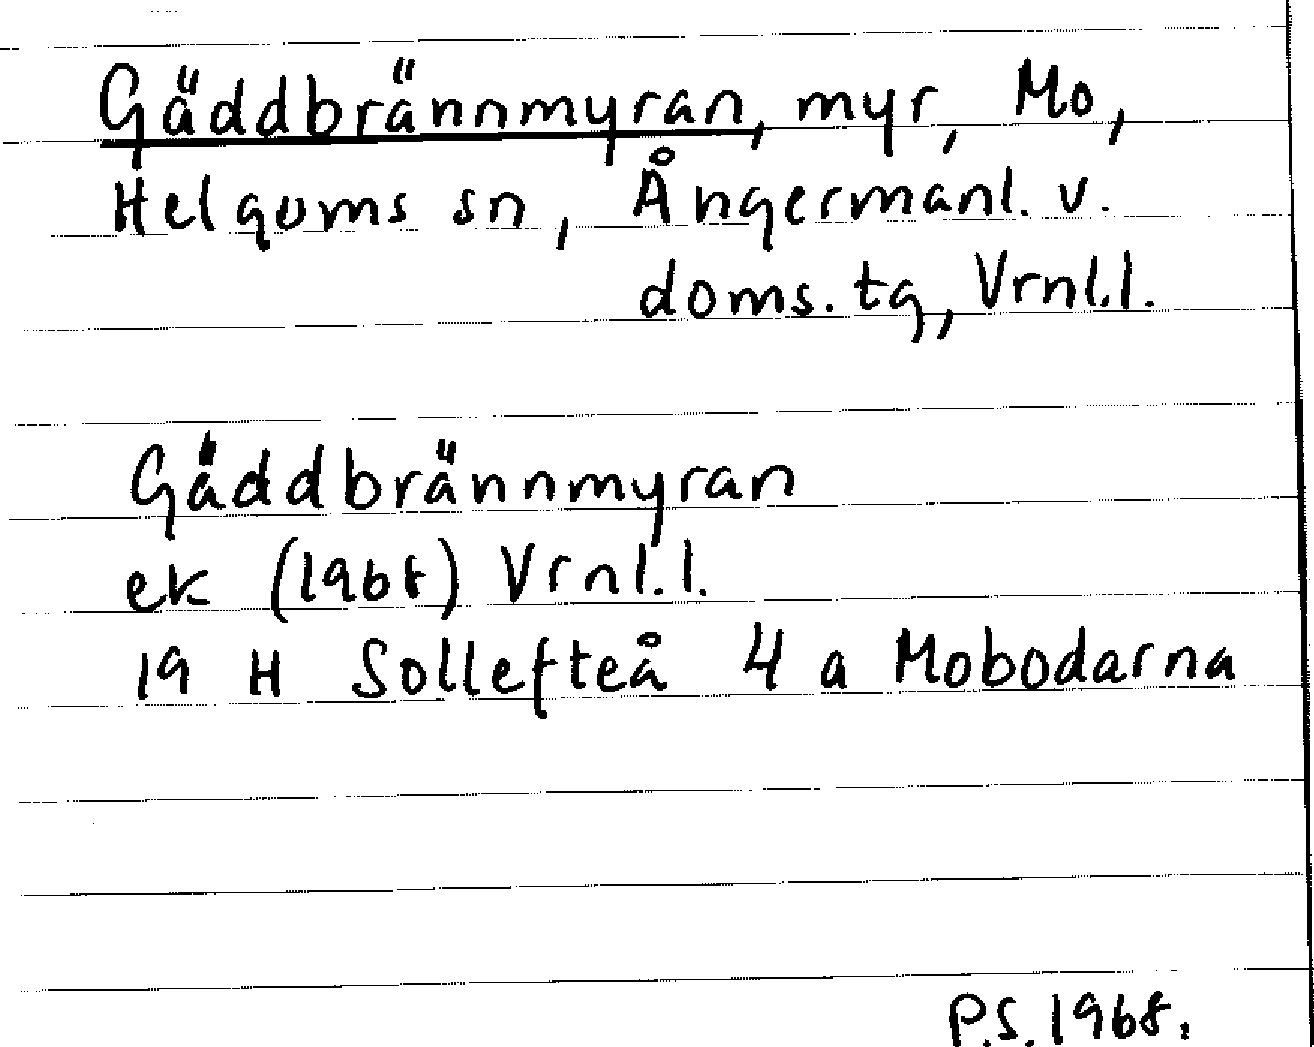 Gäddbrännmyran, myr, Mo,
Helgums sn, Ångermanl. v.
doms. tg, Vrnl.l.
Gäddbrännmyran
ek (1968) Vrnl.l.
19 H Sollefteå 4 a Mobodarna
P.S. 1968.